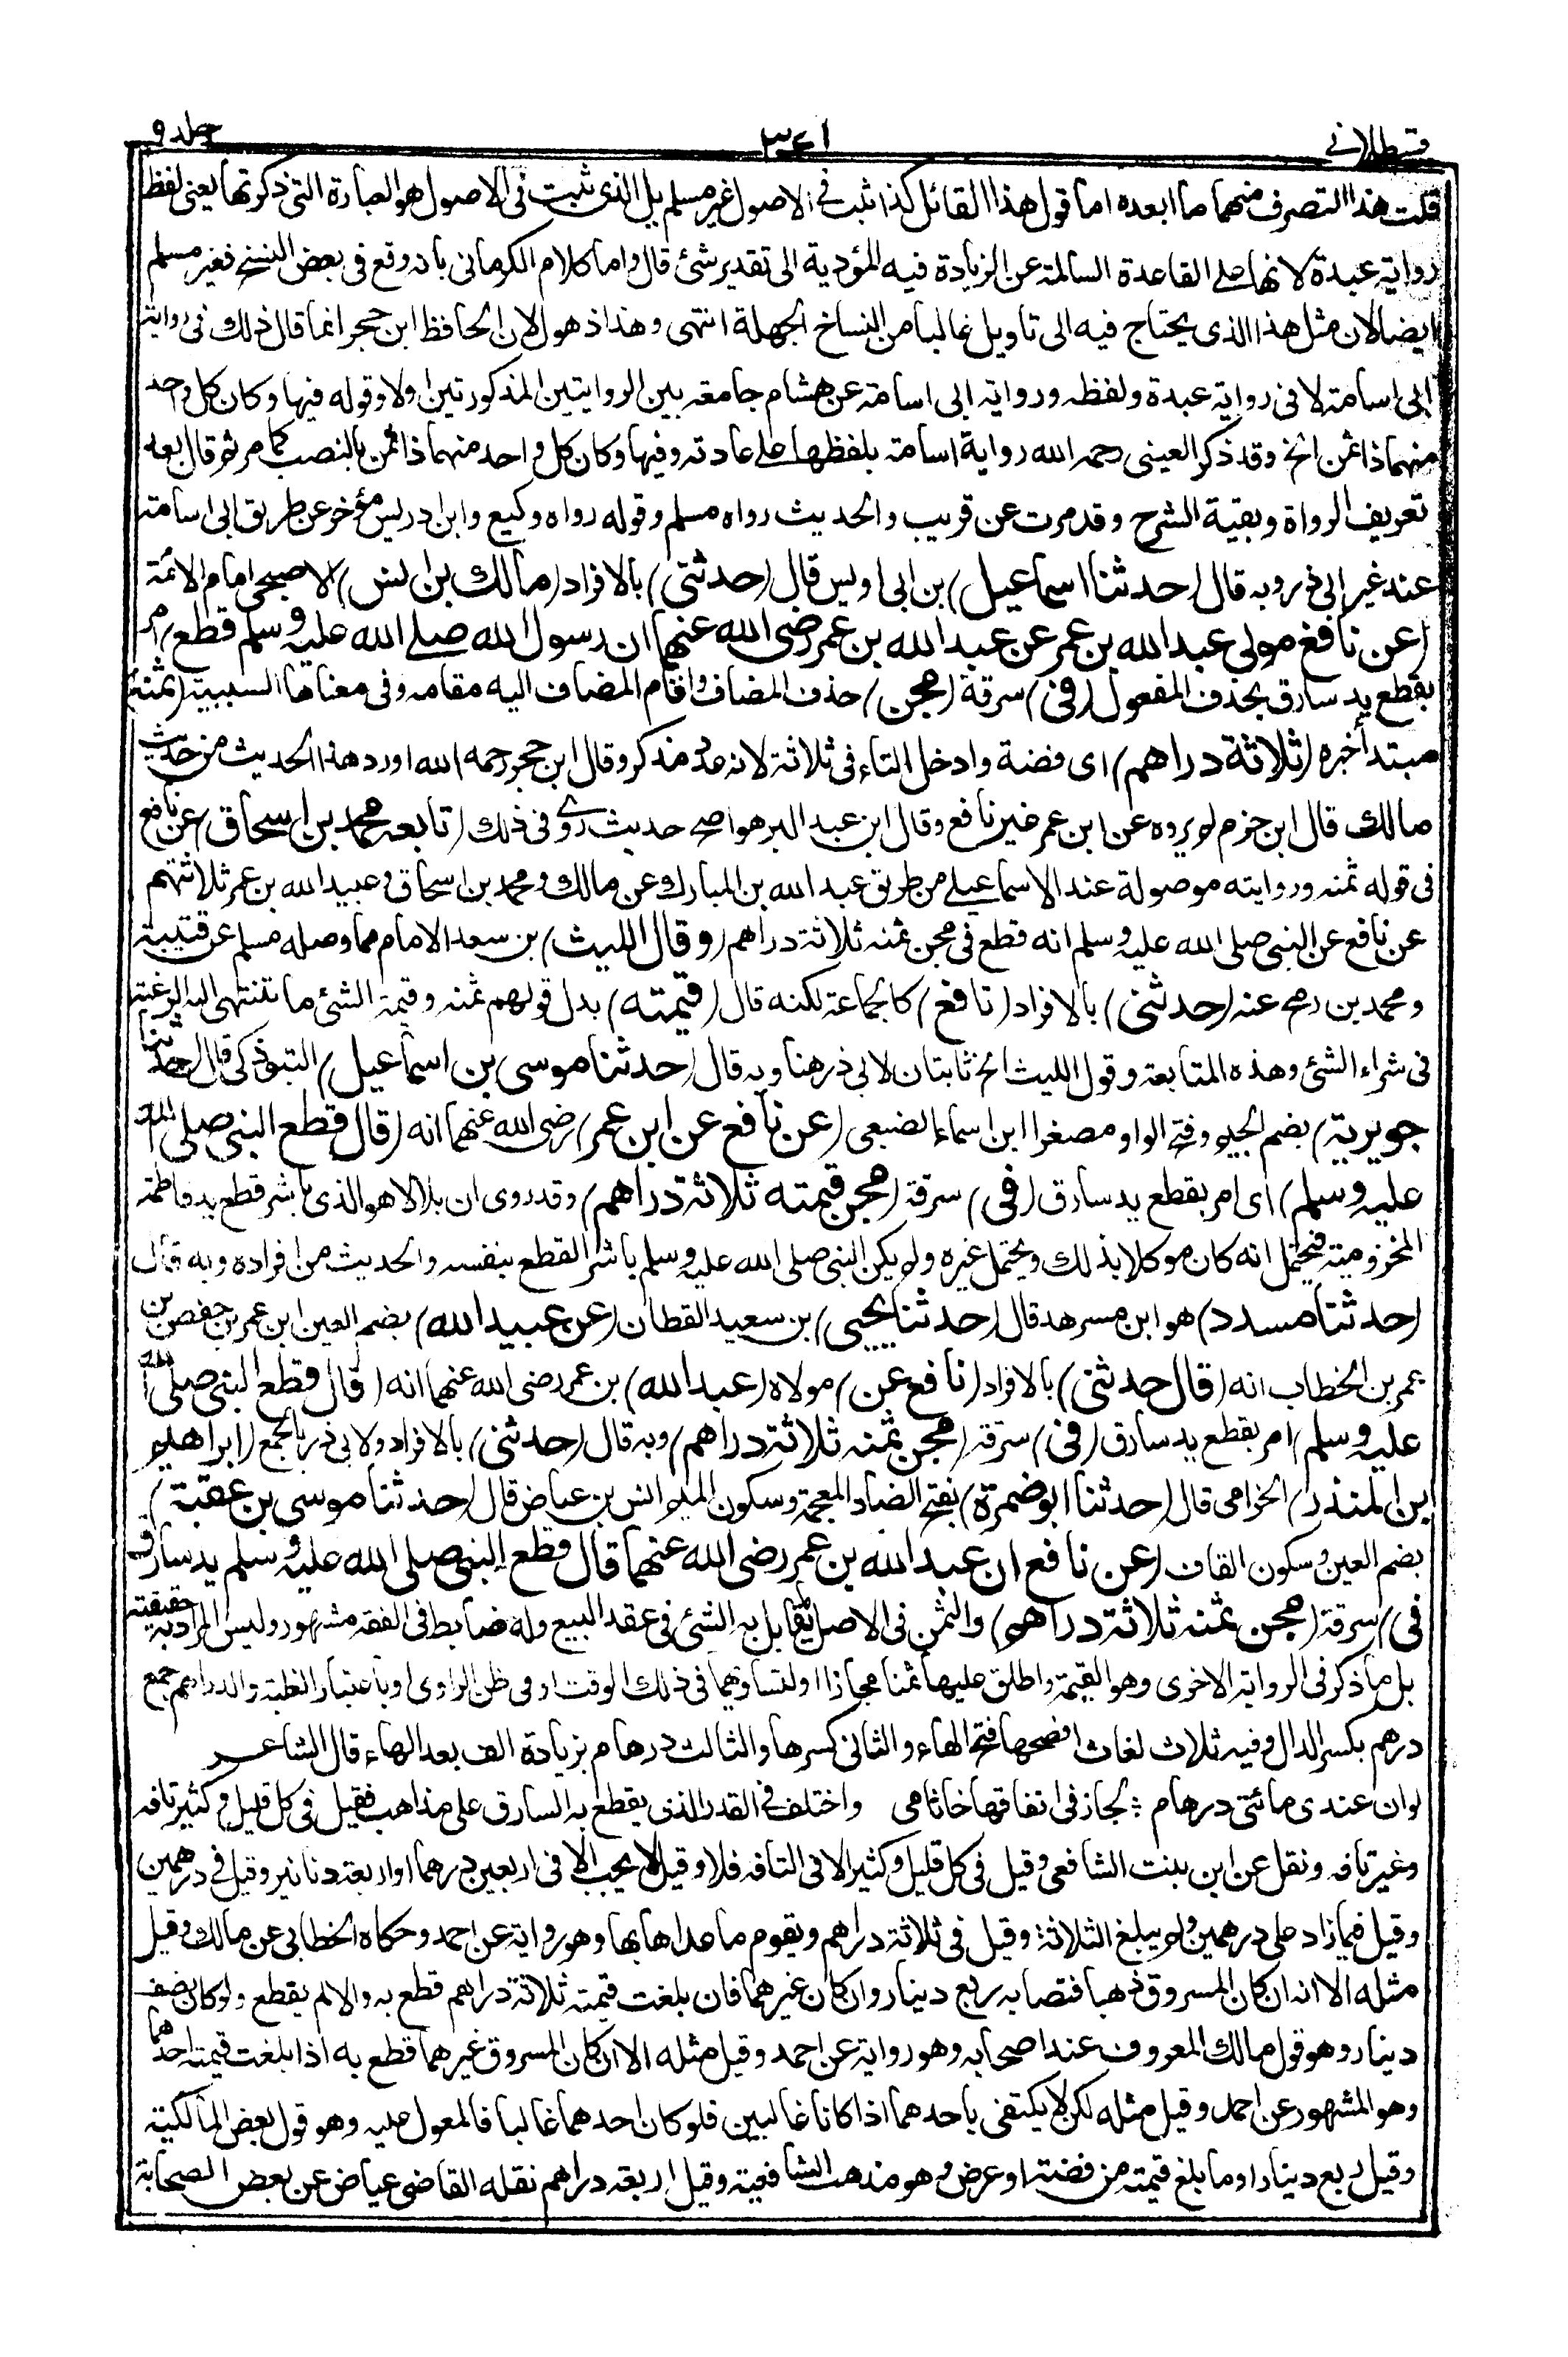 قسطلانے ٣٤١ جلد ٩
قلت هذا التصرف منهما ما ابعده اما قول هذا القائل كذا ثبت في الاصول غير مسلم بل الذى ثبت فى الاصول هو العبارة التى ذكرتها يعنى لفظ
رواية عبدة لانها على القاعدة السالمة عن الزيادة فيه المؤدية الى تقدير شئ قال واما كلام الكرمانى بانه وقع فى بعض النسخ فغير مسلم
ايضا لان مثل هذا الذى يحتاج فيه الى تاويل غالبا من النساخ الجهلة انتهى وهذا ذهول لان الحافظ ابن حجر انما قال ذلك فى رواية
ابى اسامة لا فى رواية عبدة ولفظه ورواية ابى اسامة عن هشام جامعة بين الروايتين المذكورتين اولا وقوله فيها وكان كل واحد
منهما ذا ثمن الخ وقد ذكر العينى رحمه الله رواية اسامة بلفظها على عادته وفيها وكان كل واحد منهما ذا ثمن بالنصب كما مر ثم قال بعد
تعريف الرواة وبقية الشرح وقد مرت عن قريب والحديث رواه مسلم وقوله رواه وكيع وابن ادريس مؤخر عن طريق ابى اسامة
عند غير ابى ذر وبه قال (حدثنا اسماعيل) بن ابى اويس قال (حدثنى) بالافراد (مالك بن انس) الاصبحى امام الائمة
(عن نافع مولى عبد الله بن عمر عن عبد الله بن عمر رضى الله عنهما ان رسول الله صلى الله عليه وسلم قطع) امر
بقطع يد سارق بحذف المفعول (فى) سرقة (مجن) حذف المضاف واقام المضاف اليه مقامه وفى معناها السببية (ثمنه)
مبتدأ خبره (ثلاثة دراهم) اى فضة وادخل التاء فى ثلاثة لانه عدد مذكر وقال ابن حجر رحمه الله اورد هذا الحديث من حديث
مالك قال ابن حزم لم يروه عن ابن عمر غير نافع وقال ابن عبد البر هو اصح حديث روى فى ذلك (تابعه محمد بن اسحاق) عن نافع
فى قوله ثمنه وروايته موصولة عند الاسماعيلى من طريق عبد الله بن المبارك عن مالك ومحمد بن اسحاق وعبيد الله بن عمر ثلاثتهم
عن نافع عن النبى صلى الله عليه وسلم انه قطع فى مجن ثمنه ثلاثة دراهم (وقال الليث) بن سعد الامام مما وصله مسلم عن قتيبة
ومحمد بن رمح عنه (حدثنى) بالافراد (نافع) كالجماعة لكنه قال (قيمته) بدل قولهم ثمنه وقيمة الشئ ما تنتهى اليه الرغبة
فى شراء الشئ وهذه المتابعة وقول الليث الخ ثابتان لابى ذر هنا وبه قال (حدثنا موسى بن اسماعيل) التبوذكى قال (حدثنا
جويرية) بضم الجيم وفتح الواو مصغرا ابن اسماء الضبعى (عن نافع عن ابن عمر) رضى الله عنهما انه (قال قطع النبى صلى الله
عليه وسلم) اى امر بقطع يد سارق (فى) سرقة (مجن قيمته ثلاثة دراهم) وقد روى ان بلالا هو الذى باشر قطع يد فاطمة
المخزومية فيحتمل انه كان موكلا بذلك ويحتمل غيره ولم يكن النبى صلى الله عليه وسلم باشر القطع بنفسه والحديث من افراده وبه قال
(حدثنا مسدد) هو ابن مسرهد قال (حدثنا يحيى) بن سعيد القطان (عن عبيد الله) بضم العين ابن عمر بن حفص بن
عمر بن الخطاب انه (قال حدثنى) بالافراد (نافع عن) مولاه (عبد الله) بن عمر رضى الله عنهما انه (قال قطع النبى صلى الله
عليه وسلم) امر بقطع يد سارق (فى) سرقة (مجن ثمنه ثلاثة دراهم) وبه قال (حدثنى) بالافراد ولابى ذر بالجمع (ابراهيم
بن المنذر) الخزامى قال (حدثنا ابو ضمرة) بفتح الضاد المعجمة وسكون الميم انس بن عياض قال (حدثنا موسى بن عقبة)
بضم العين وسكون القاف (عن نافع ان عبد الله بن عمر رضى الله عنهما قال قطع النبى صلى الله عليه وسلم يد سارق
فى) سرقة (مجن ثمنه ثلاثة دراهم) والثمن فى الاصل ما يقابل به الشئ فى عقد البيع وله ضابط فى الفقه مشهور وليس المراد به حقيقته
بل ما ذكر فى الرواية الاخرى وهو القيمة واطلق عليها ثمنا مجازا او لتساويهما فى ذلك الوقت او فى ظن الراوى او باعتبار الغلبة والدراهم جمع
درهم بكسر الدال وفيه ثلاث لغات افصحها فتح الهاء والثانى كسرها والثالث درهام بزيادة الف بعد الهاء قال الشاعر
لوان عندى مائتى درهام ؞ لجاز فى انفاقها خاتامى واختلف فى القدر الذى يقطع به السارق على مذاهب فقيل فى كل قليل وكثير تافه
وغير تافه ونقل عن ابن بنت الشافعى وقيل فى كل قليل وكثير الا فى التافه فلا وقيل لا يجب الا فى اربعين درهما او اربعة دنانير وقيل فى درهمين
وقيل فيما زاد على درهمين ولم يبلغ الثلاثة وقيل فى ثلاثة دراهم ويقوم ما عداها بها وهو رواية عن احمد وحكاه الخطابى عن مالك وقيل
مثله الا انه ان كان المسروق ذهبا فنصابه ربع دينار وان كان غيرهما فان بلغت قيمته ثلاثة دراهم قطع به والا لم يقطع ولو كان نصف
دينار وهو قول مالك المعروف عند اصحابه وهو رواية عن احمد وقيل مثله الا ان كان المسروق غيرهما قطع به اذا بلغت قيمته احدهما
وهو المشهور عن احمد وقيل مثله لكن لا يكتفى باحدهما اذا كانا غالبين فلو كان احدهما غالبا فالمعول عليه وهو قول بعض المالكية
وقيل ربع دينار او ما بلغ قيمته من فضة او عرض وهو مذهب الشافعية وقيل اربعة دراهم نقله القاضى عياض عن بعض الصحابة